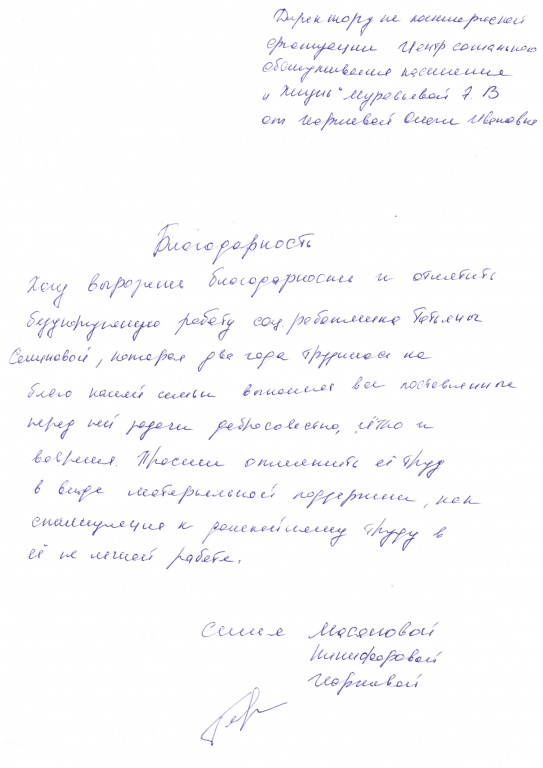 Директору не коммерческой
организации Центр социального
обслуживания населения
"Жизнь" Муравьевой А. В
от Чернявой Ольги Ивановны
Благодарность
Хочу выразить благодарность и отметить
безукоризненную работу соц. работника Татьяны
Семеновой, которая два года трудилась на
благо нашей семьи выполняя все поставленные
перед ней задачи добросовестно, чётко и
вовремя. Просим отметить её труд
в виде материальной поддержки, как
стимуляция к дальнейшему труду в
её не легкой работе.
Семья Масановой
Никифоровой